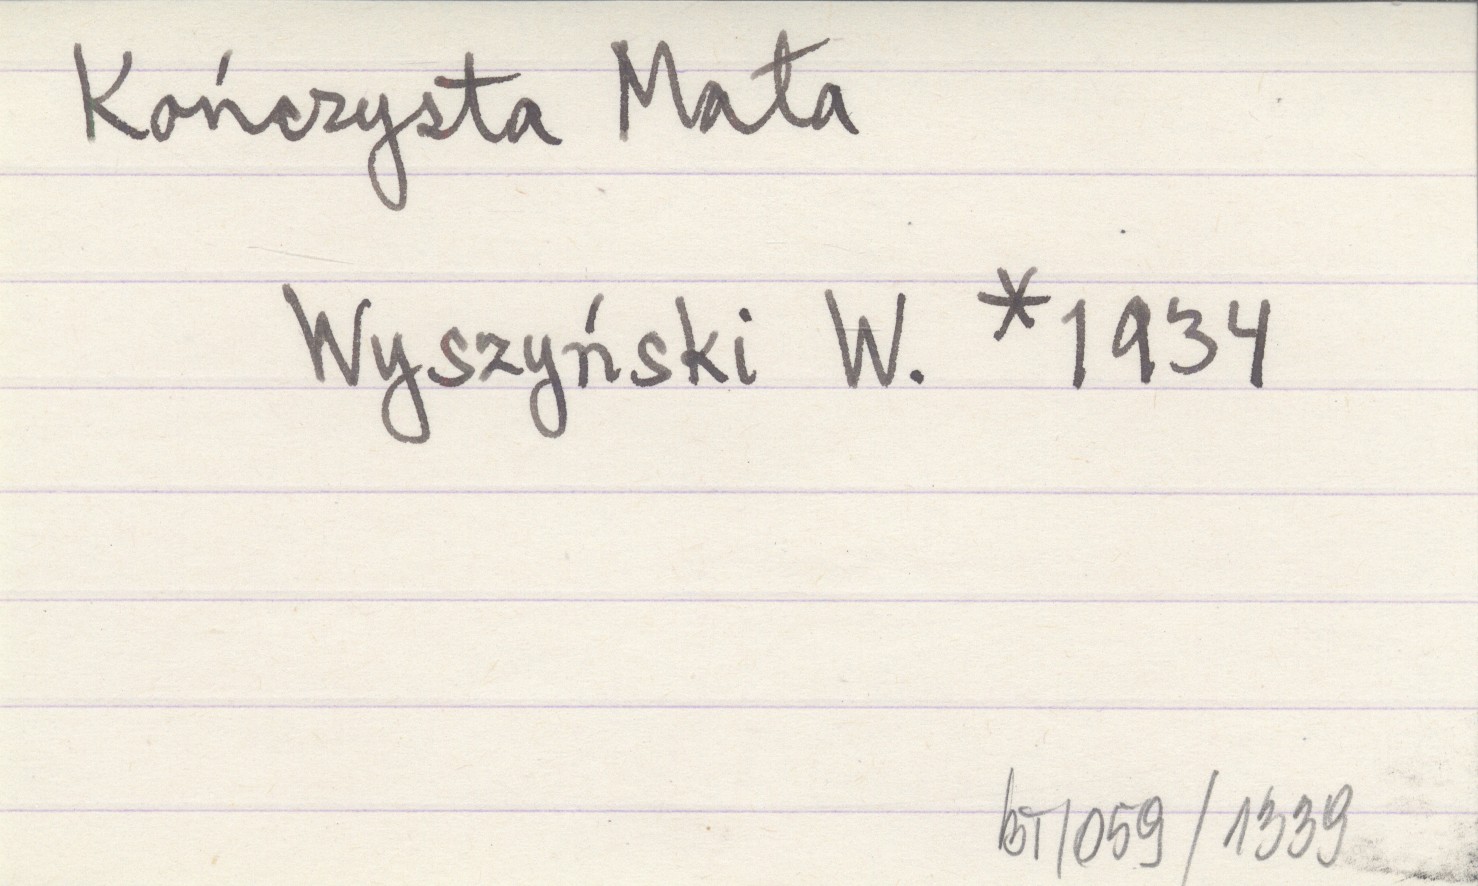 Kończysta Mała
Wyszyński W. *1934
bT/059/1339